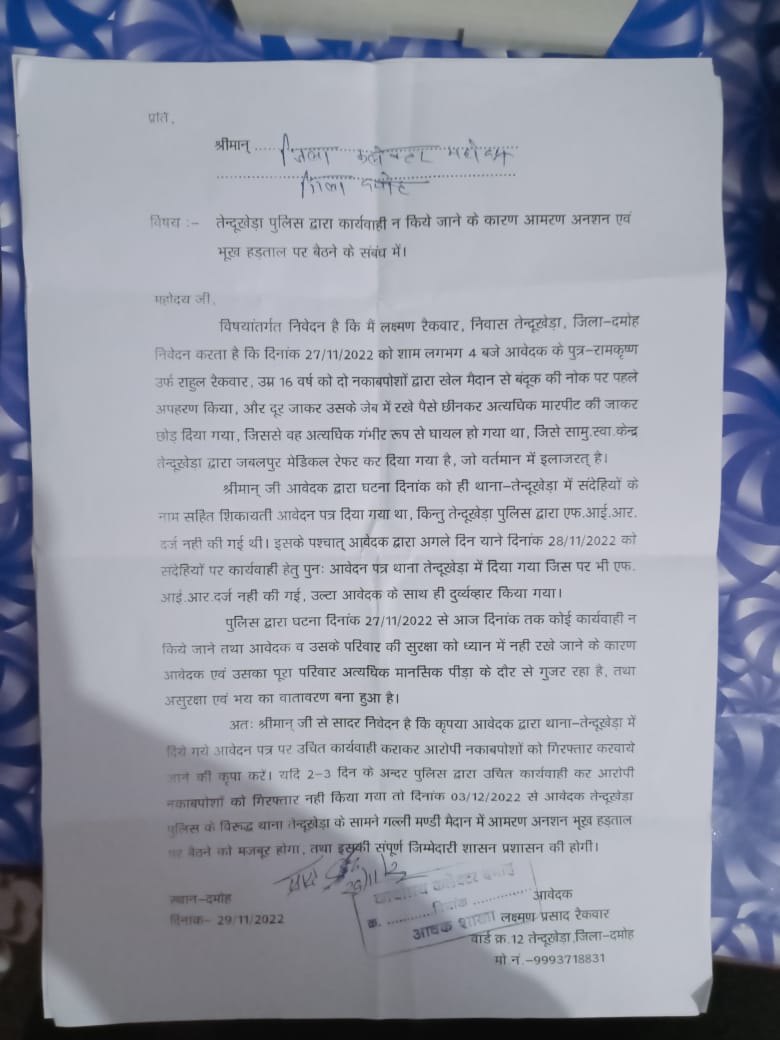 प्रति,
श्रीमान् जिला कलेक्टर महोदय
जिला दमोह
विषय :- तेन्दूखेड़ा पुलिस द्वारा कार्यवाही न किये जाने के कारण आमरण अनशन एवं
भूख हड़ताल पर बैठने के संबंध में।
महोदय जी,
विषयांतर्गत निवेदन है कि मैं लक्ष्मण रैकवार, निवास तेन्दूखेड़ा, जिला-दमोह
निवेदन करता है कि दिनांक 27/11/2022 को शाम लगभग 4 बजे आवेदक के पुत्र-रामकृष्ण
उर्फ राहुल रैकवार, उम्र 16 वर्ष को दो नकाबपोशों द्वारा खेल मैदान से बंदूक की नोक पर पहले
अपहरण किया, और दूर जाकर उसके जेब में रखे पैसे छीनकर अत्यधिक मारपीट की जाकर
छोड़ दिया गया, जिससे वह अत्यधिक गंभीर रूप से घायल हो गया था, जिसे सामु.स्वा.केन्द्र
तेन्दूखेड़ा द्वारा जबलपुर मेडिकल रेफर कर दिया गया है, जो वर्तमान में इलाजरत् है।
श्रीमान् जी आवेदक द्वारा घटना दिनांक को ही थाना-तेन्दूखेड़ा में संदेहियों के
नाम सहित शिकायती आवेदन पत्र दिया गया था, किन्तु तेन्दूखेड़ा पुलिस द्वारा एफ.आई.आर.
दर्ज नही की गई थी। इसके पश्चात् आवेदक द्वारा अगले दिन याने दिनांक 28/11/2022 को
संदेहियों पर कार्यवाही हेतु पुनः आवेदन पत्र थाना तेन्दूखेड़ा में दिया गया जिस पर भी एफ.
आई.आर.दर्ज नही की गई, उल्टा आवेदक के साथ ही दुर्व्यव्हार किया गया।
पुलिस द्वारा घटना दिनांक 27/11/2022 से आज दिनांक तक कोई कार्यवाही न
किये जाने तथा आवेदक व उसके परिवार की सुरक्षा को ध्यान में नही रखे जाने के कारण
आवेदक एवं उसका पूरा परिवार अत्यधिक मानसिक पीड़ा के दौर से गुजर रहा है, तथा
असुरक्षा एवं भय का वातावरण बना हुआ है।
अतः श्रीमान् जी से सादर निवेदन है कि कृपया आवेदक द्वारा थाना-तेन्दूखेड़ा में
दिये गये आवेदन पत्र पर उचित कार्यवाही कराकर आरोपी नकाबपोशों को गिरफ्तार करवाये
जाने की कृपा करें। यदि 2-3 दिन के अन्दर पुलिस द्वारा उचित कार्यवाही कर आरोपी
नकाबपोशों को गिरफ्तार नही किया गया तो दिनांक 03/12/2022 से आवेदक तेन्दूखेड़ा
पुलिस के विरूद्ध थाना तेन्दूखेड़ा के सामने गल्ली मण्डी मैदान में आमरण अनशन भूख हड़ताल
पर बैठने को मजबूर होगा, तथा इसकी संपूर्ण जिम्मेदारी शासन प्रशासन की होगी।
कार्यालय कलेक्टर दमोह
क. ............दिनांक ...............
आवक शाखा
स्थान-दमोह
दिनांक- 29/11/2022
आवेदक
लक्ष्मण प्रसाद रैकवार
वार्ड क्र.12 तेन्दूखेड़ा,जिला-दमोह
मो नं.-9993718831